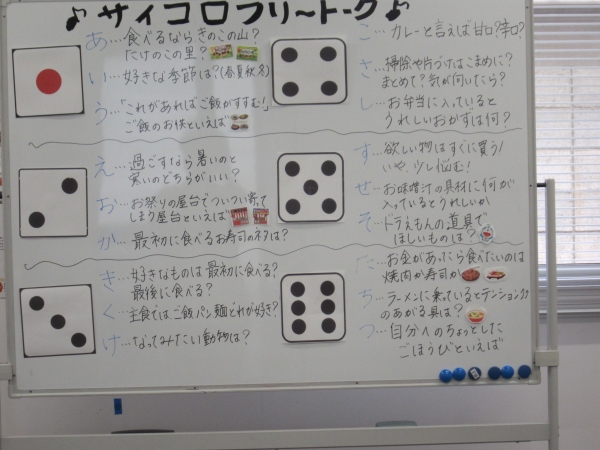 ♪サイコロフリートーク♪
あ…食べるならきのこの山?
たけのこの里?
い…好きな季節は?(春夏秋冬)
う…「これがあればご飯がすすむ!」
ご飯のお供といえば
え…過ごすなら暑いのと
寒いのどちらがいい?
お…お祭りの屋台でついつい寄って
しまう屋台といえば
か…最初に食べるお寿司のネタは?
き…好きなものは最初に食べる?
最後に食べる?
く…主食では、ご飯パン麺どれが好き?
け…なってみたい動物は?
こ…カレーと言えば甘口?辛口?
さ…掃除や片づけはこまめに?
まとめて?気が向いたら?
し…お弁当に入っていると
うれしいおかずは何?
す…欲しい物はすぐに買う/
いや、少し悩む!
せ…お味噌汁の具材に何が
入っているとうれしいか
そ…ドラえもんの道具で
ほしいものは?
た…お金があったら食べたいのは
焼肉か寿司か
ち…ラーメンに乗っているとテンション
のあがる具は?
つ…自分へのちょっとした
ごほうびといえば